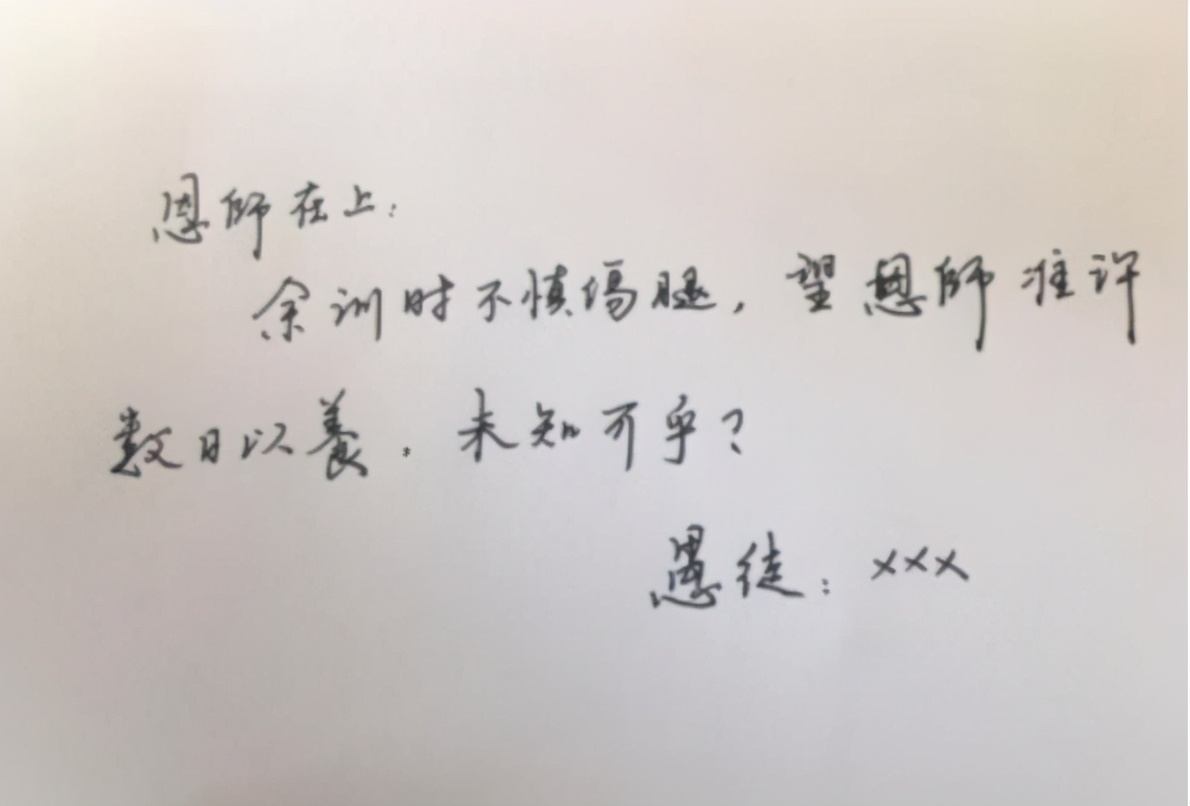 恩师在上：
余训时不慎伤腿，望恩师准许
数日以养。未知可乎？
愚徒：×××